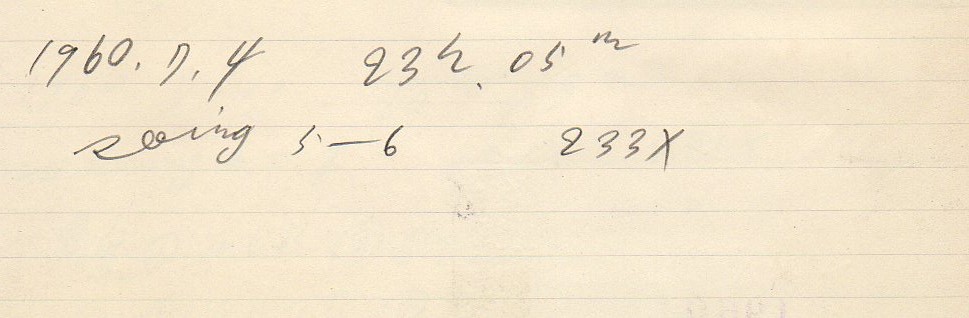 1960. 7. 4 23h. 05m
seeing 5-6 233X